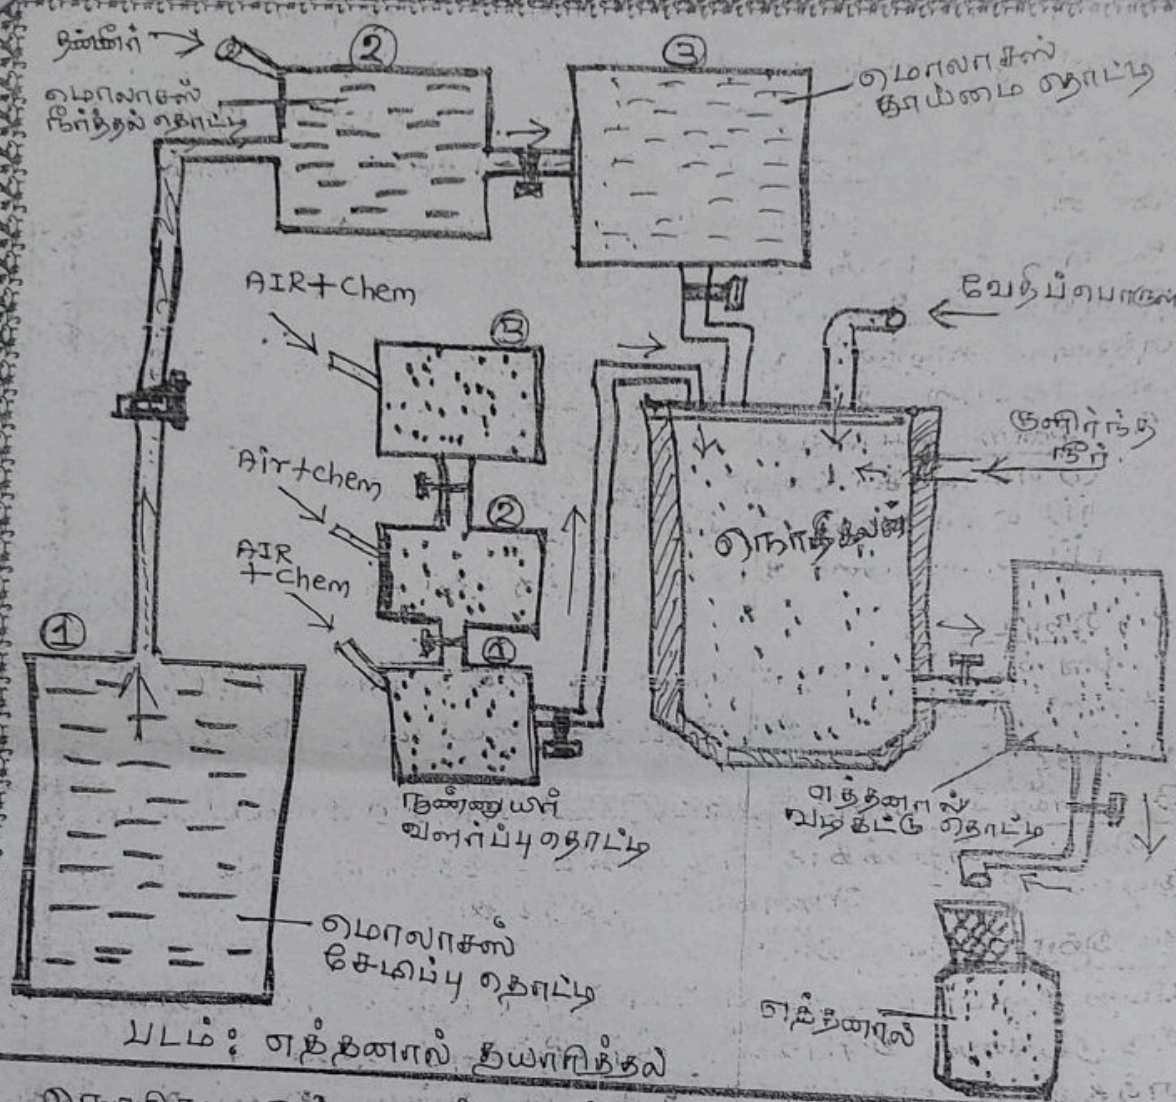 தண்ணீர்
②
③
மொலாசஸ்
நீர்த்தல் தொட்டி
மொலாசஸ்
தூய்மை தொட்டி
AIR+Chem
வேதிப்பொருள்
③
Air+chem
குளிர்ந்த
நீர்
②
நொதிகலன்
AIR
+Chem
①
①
நுண்ணுயிர்
வளர்ப்பு தொட்டி
எத்தனால்
வடிகட்டு தொட்டி
மொலாசஸ்
சேமிப்பு தொட்டி
எத்தனால்
படம்: எத்தனால் தயாரித்தல்